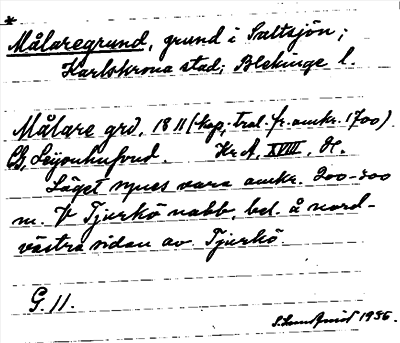 *
Målaregrund, grund i Saltsjön;
Karlskrona stad; Blekinge l.
Målare grd, 1811 (kop. tral. fr. omkr. 1700)
Leijonhufvud. Kr. A, XVIII,
Läget synes vara omkr. 200-300
m. V Tjurkö nabb, bel. å nord-
västra sidan av Tjurkö.
G. 11.
1936.